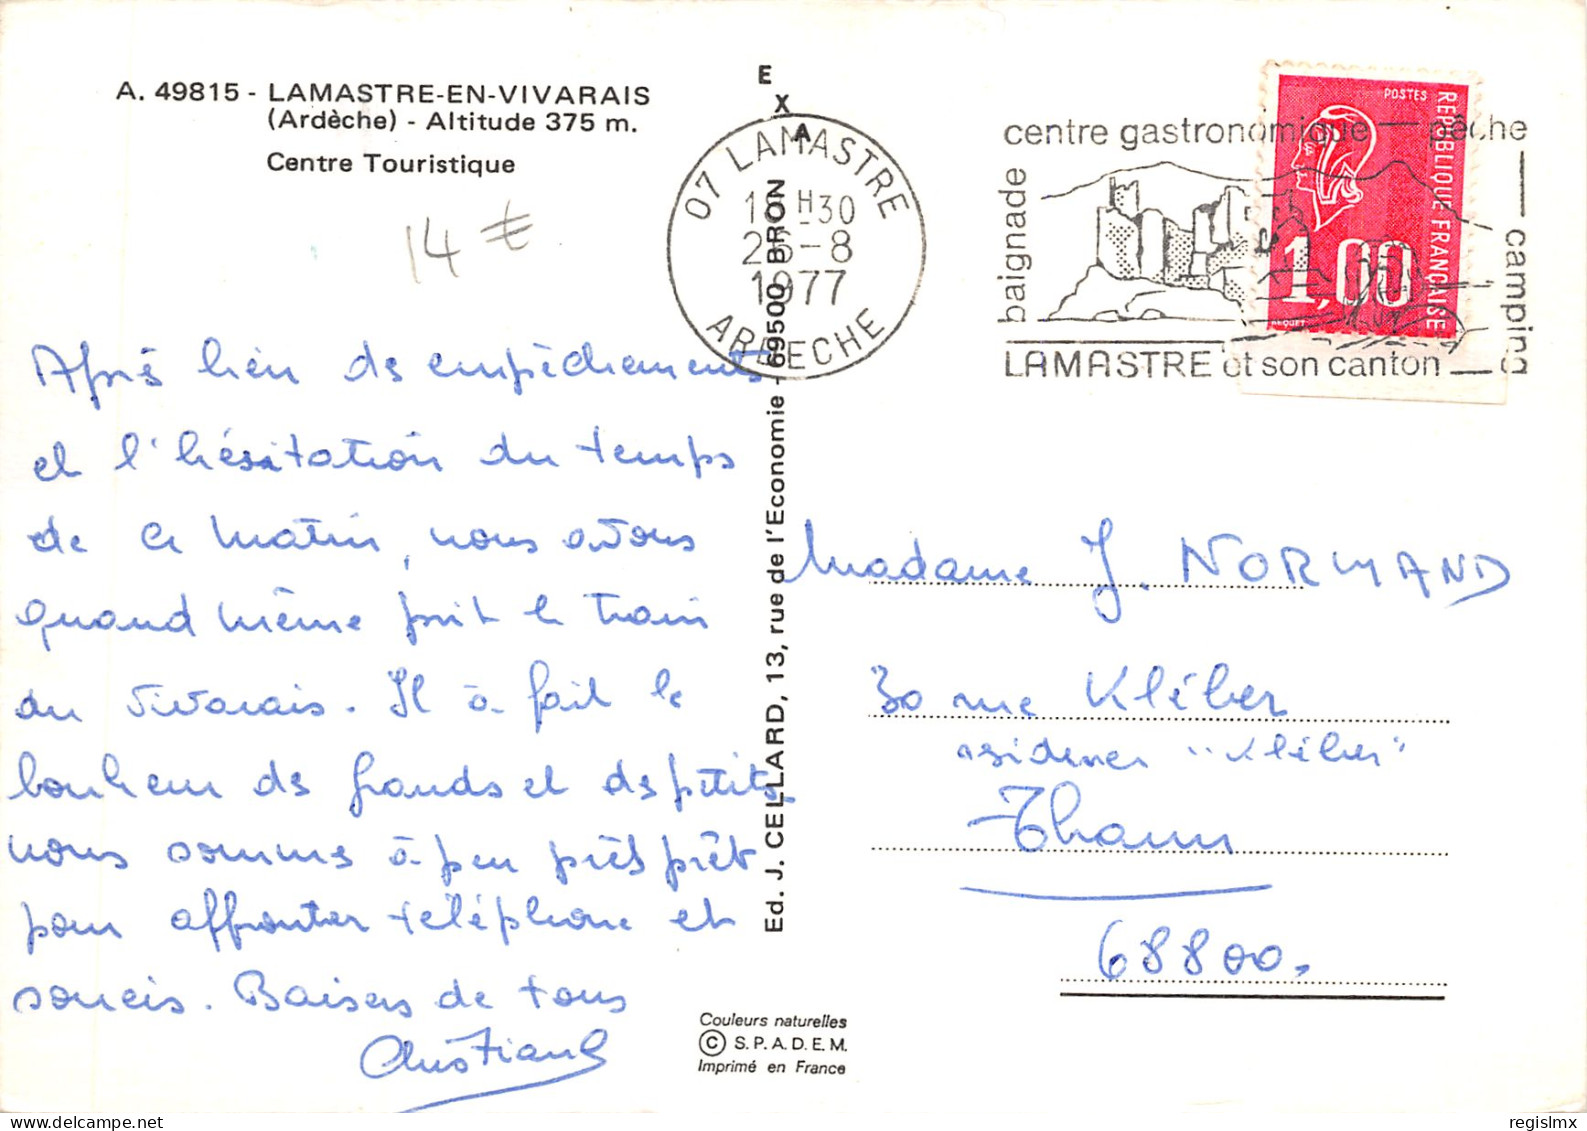 A. 49815 - LAMASTRE-EN-VIVARAIS
(Ardèche) - Altitude 375 m.
Centre Touristique
14 €
Après bien des empêchements
et l'hésitation du temps
de ce matin, nous avons
quand même pris le train
du Vivarais. Il a fait le
bonheur des grands et des petits,
nous sommes à peu près prêt
pour affronter téléphone et
soucis. Baisers de tous
Christiane
EXA
Ed. J. CELLARD, 13, rue de l'Economie - 69500 BRON
Couleurs naturelles
© S.P.A.D.E.M.
Imprimé en France
07 LAMASTRE
18 H 30
26-8
1977
ARDECHE
centre gastronomique — pêche
baignade
camping
LAMASTRE et son canton
POSTES
REPUBLIQUE FRANÇAISE
1,00
BEQUET
Madame J. NORMAND
30 rue Kléber
résidence "Kléber"
Thann
68800.
regislmx